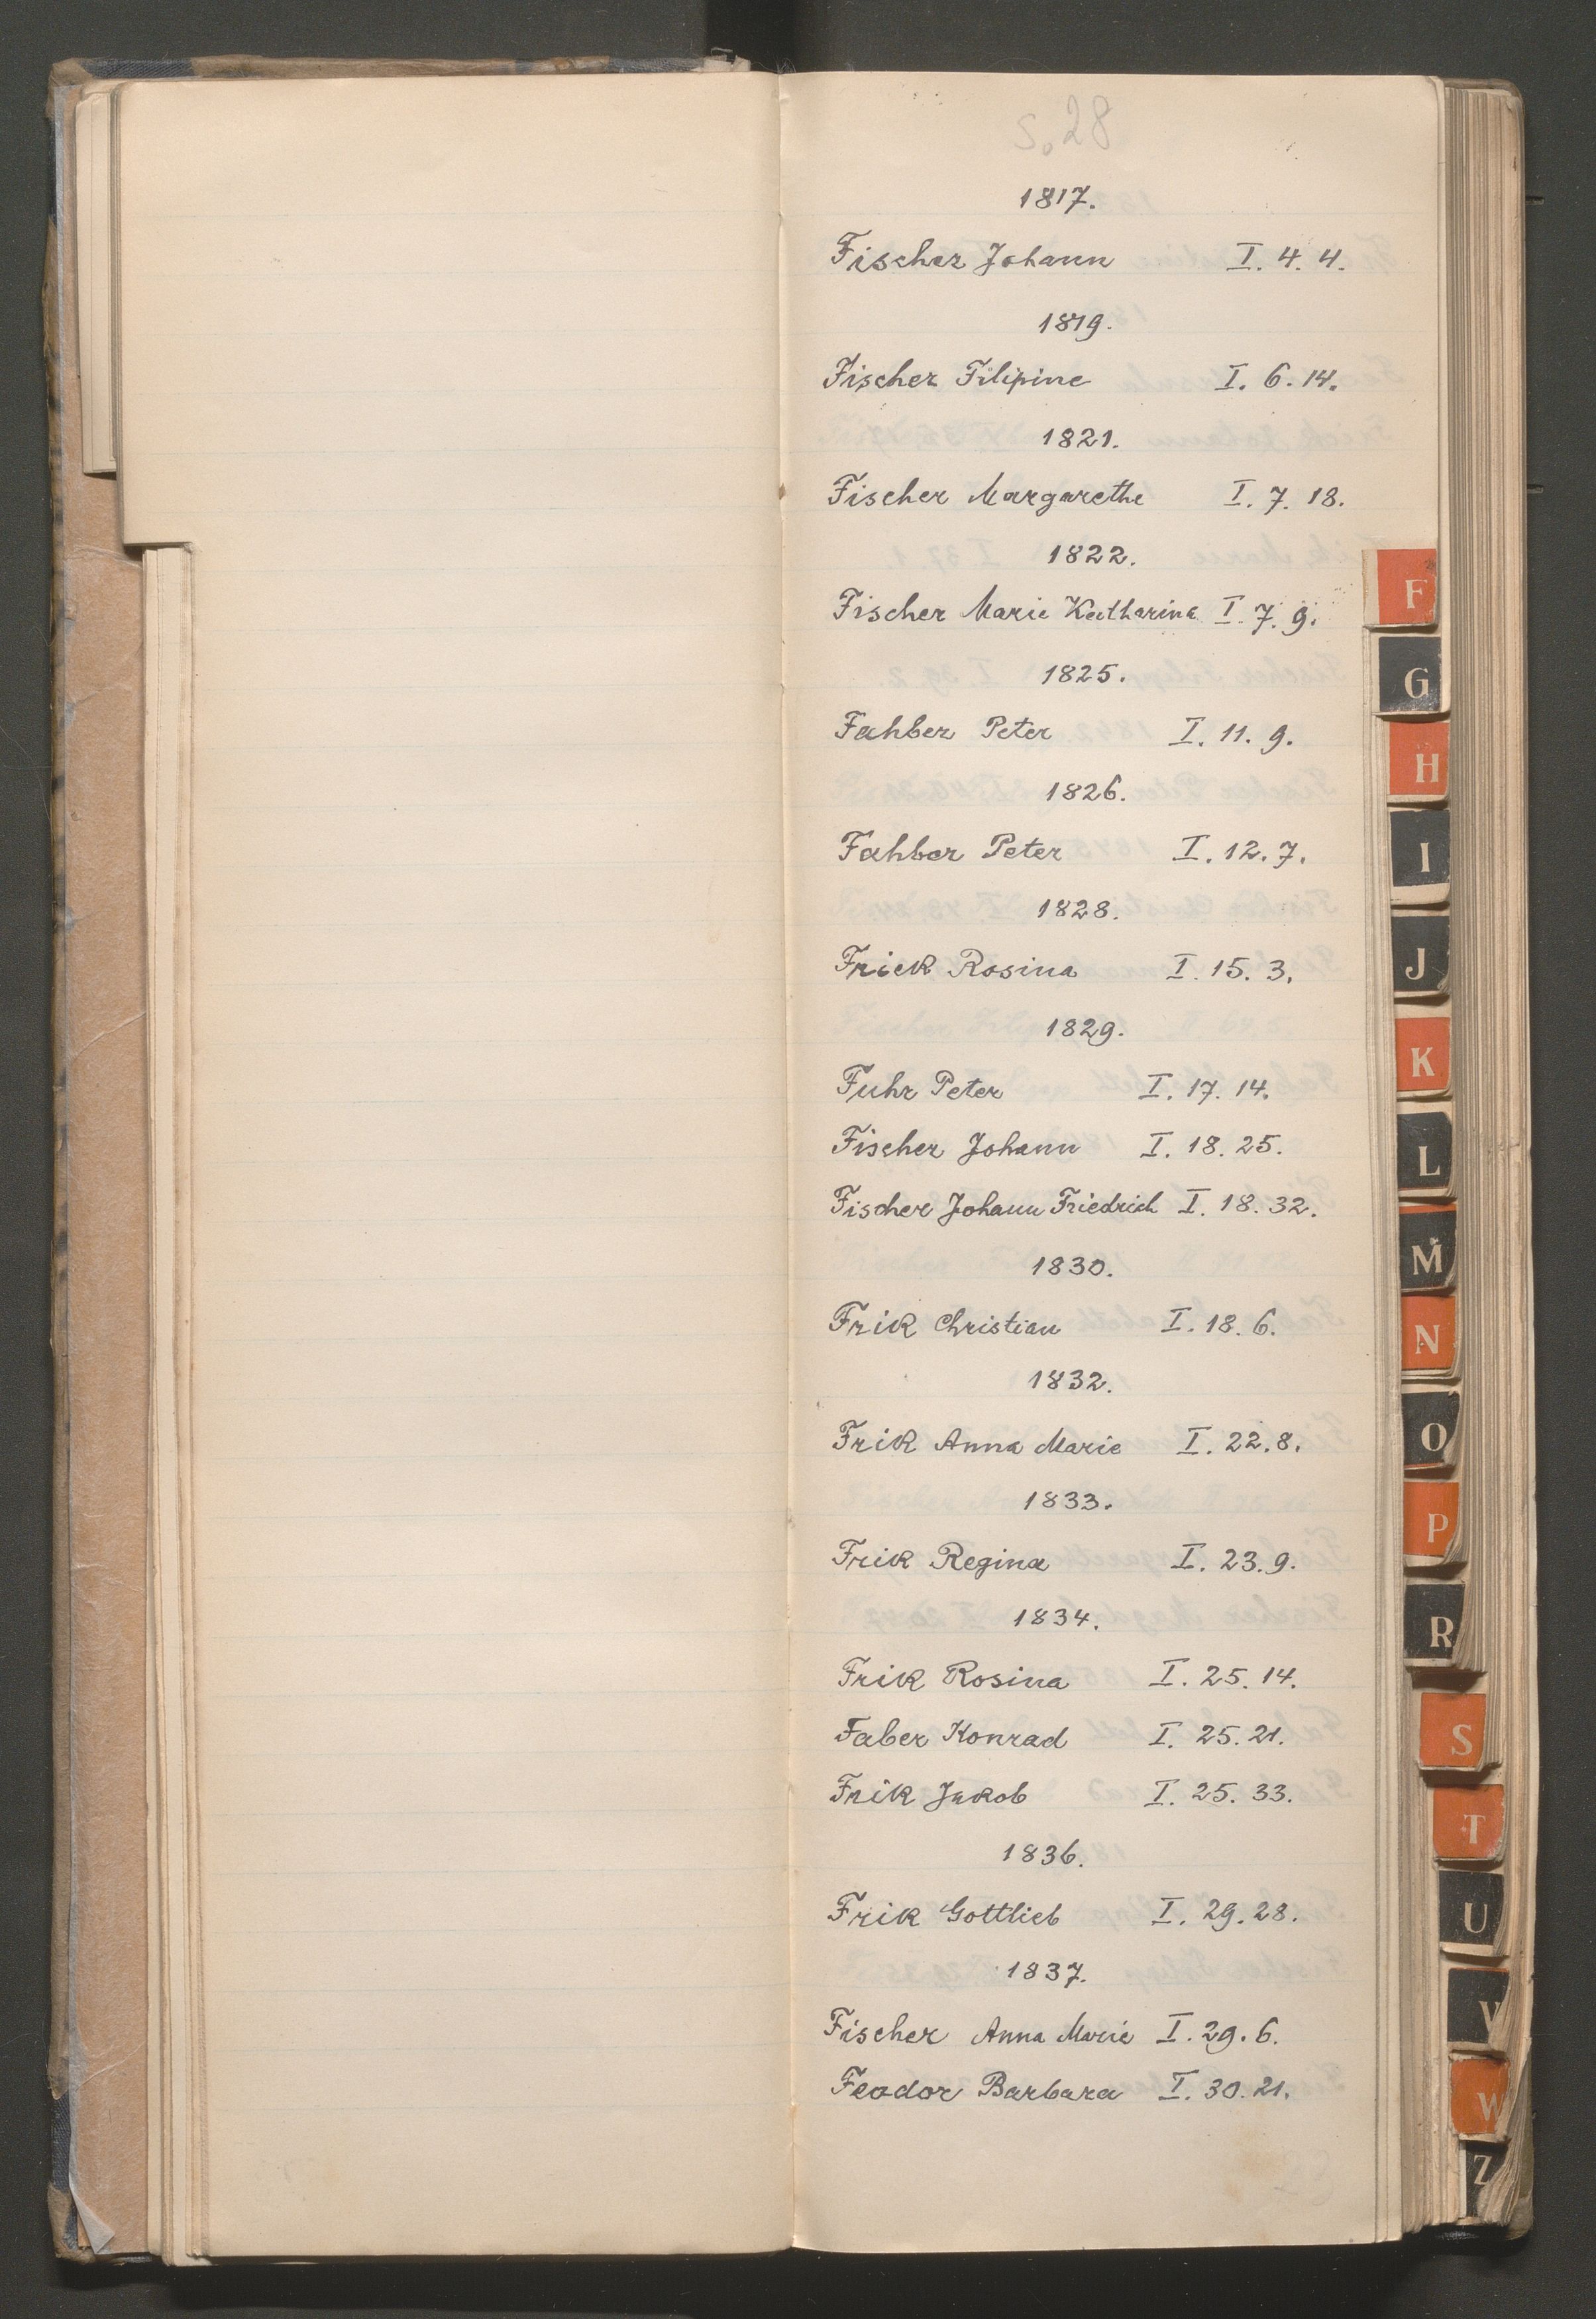 S. 28
1817.
Fischer Johann I. 4. 4.
1819.
Fischer Filipine I. 6. 14.
1821.
Fischer Margarethe I. 7. 18.
1822.
Fischer Marie Katharina I. 7. 9.
1825.
Fahber Peter I. 11. 9.
1826.
Fahber Peter I. 12. 7.
1828.
Frick Rosina I. 15. 3.
1829.
Fuhr Peter I. 17. 14.
Fischer Johann I. 18. 25.
Fischer Johann Friedrich I. 18. 32.
1830.
Frik Christian I. 18. 6.
1832.
Frik Anna Marie I. 22. 8.
1833.
Frik Regina I. 23. 9.
1834.
Frik Rosina I. 25. 14.
Faber Konrad I. 25. 21.
Frik Jakob I. 25. 33.
1836.
Frik Gottlieb I. 29. 28.
1837.
Fischer Anna Marie I. 29. 6.
Feodor Barbara I. 30. 21.
F
G
H
I
J
K
L
M
N
O
P
R
S
T
U
V
W
Z